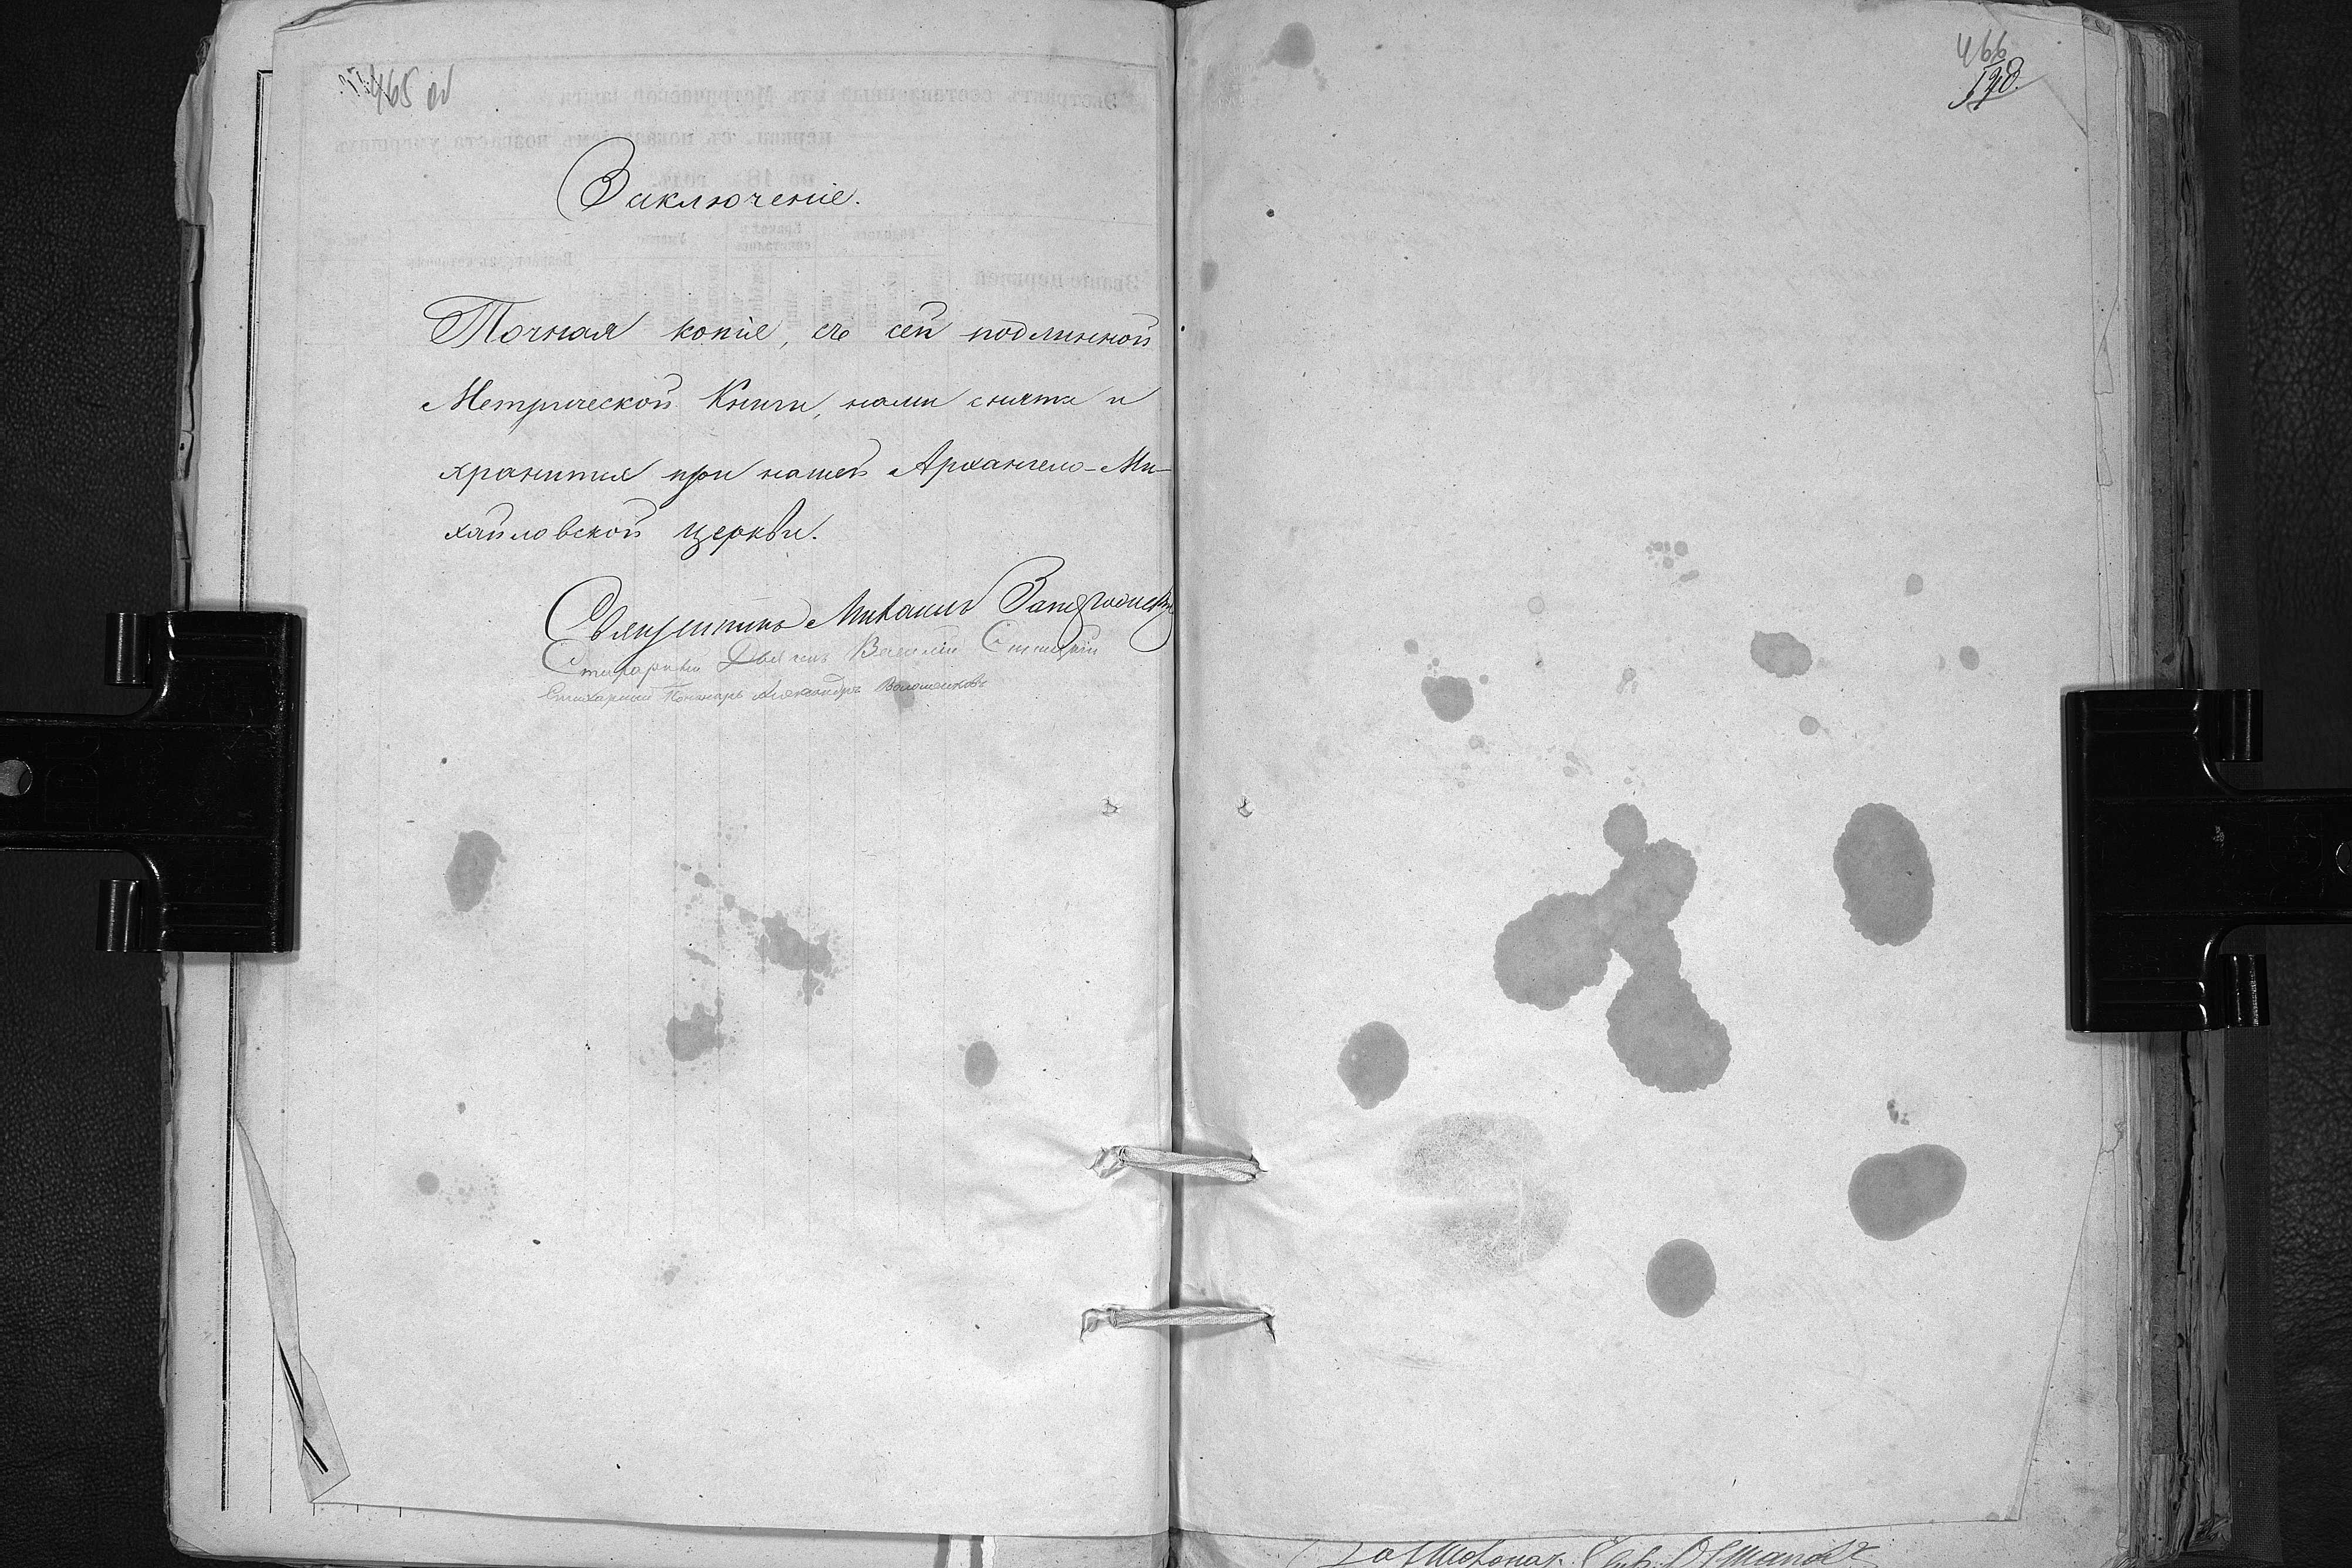 465 об
Заключеніе.
Точная копія, съ сей подлинной
Метрической Книги, нами снята и
хранится при нашей Архангело-Ми-
хайловской церкви.
Священникъ Михаилъ
Стихарный Дьячекъ Василій
Стихарный Пономарь Александръ
466